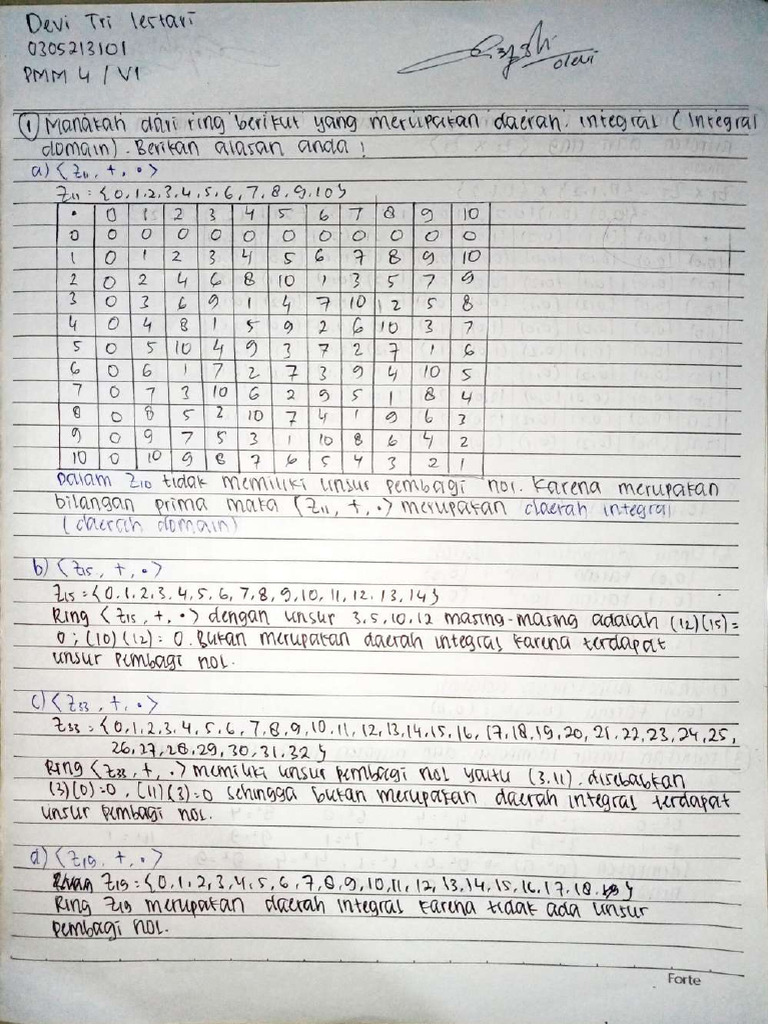 Devi Tri Lestari
0305213101
PMM 4 / VI
devi
① Manakah dari ring berikut yang merupakan daerah integral (integral
domain). Berikan alasan anda !
a) ⟨Z₁₁, +, •⟩
Z₁₁ = {0,1,2,3,4,5,6,7,8,9,10}
• 0 1 2 3 4 5 6 7 8 9 10
0 0 0 0 0 0 0 0 0 0 0 0
1 0 1 2 3 4 5 6 7 8 9 10
2 0 2 4 6 8 10 1 3 5 7 9
3 0 3 6 9 1 4 7 10 2 5 8
4 0 4 8 1 5 9 2 6 10 3 7
5 0 5 10 4 9 3 7 2 7 1 6
6 0 6 1 7 2 7 3 9 4 10 5
7 0 7 3 10 6 2 9 5 1 8 4
8 0 8 5 2 10 7 4 1 9 6 3
9 0 9 7 5 3 1 10 8 6 4 2
10 0 10 9 8 7 6 5 4 3 2 1
Dalam Z₁₀ tidak memiliki unsur pembagi nol. Karena merupakan
bilangan prima maka (Z₁₁, +, •) merupakan daerah integral
(daerah domain)
b) ⟨Z₁₅, +, •⟩
Z₁₅ = {0,1,2,3,4,5,6,7,8,9,10,11,12,13,14}
Ring ⟨Z₁₅, +, •⟩ dengan unsur 3,5,10,12 masing-masing adalah (12)(15)=
0 ; (10)(12) = 0. Bukan merupakan daerah integral karena terdapat
unsur pembagi nol.
c) ⟨Z₃₃, +, •⟩
Z₃₃ = {0,1,2,3,4,5,6,7,8,9,10,11,12,13,14,15,16,17,18,19,20,21,22,23,24,25,
26,27,28,29,30,31,32}
Ring ⟨Z₃₃, +, •⟩ memiliki unsur pembagi nol yaitu (3.11). disebabkan
(3)(0)=0, (11)(3)=0 sehingga bukan merupakan daerah integral terdapat
unsur pembagi nol.
d) ⟨Z₁₉, +, •⟩
Z₁₉ = {0,1,2,3,4,5,6,7,8,9,10,11,12,13,14,15,16,17,18}
Ring Z₁₉ merupakan daerah integral karena tidak ada unsur
pembagi nol.
Forte